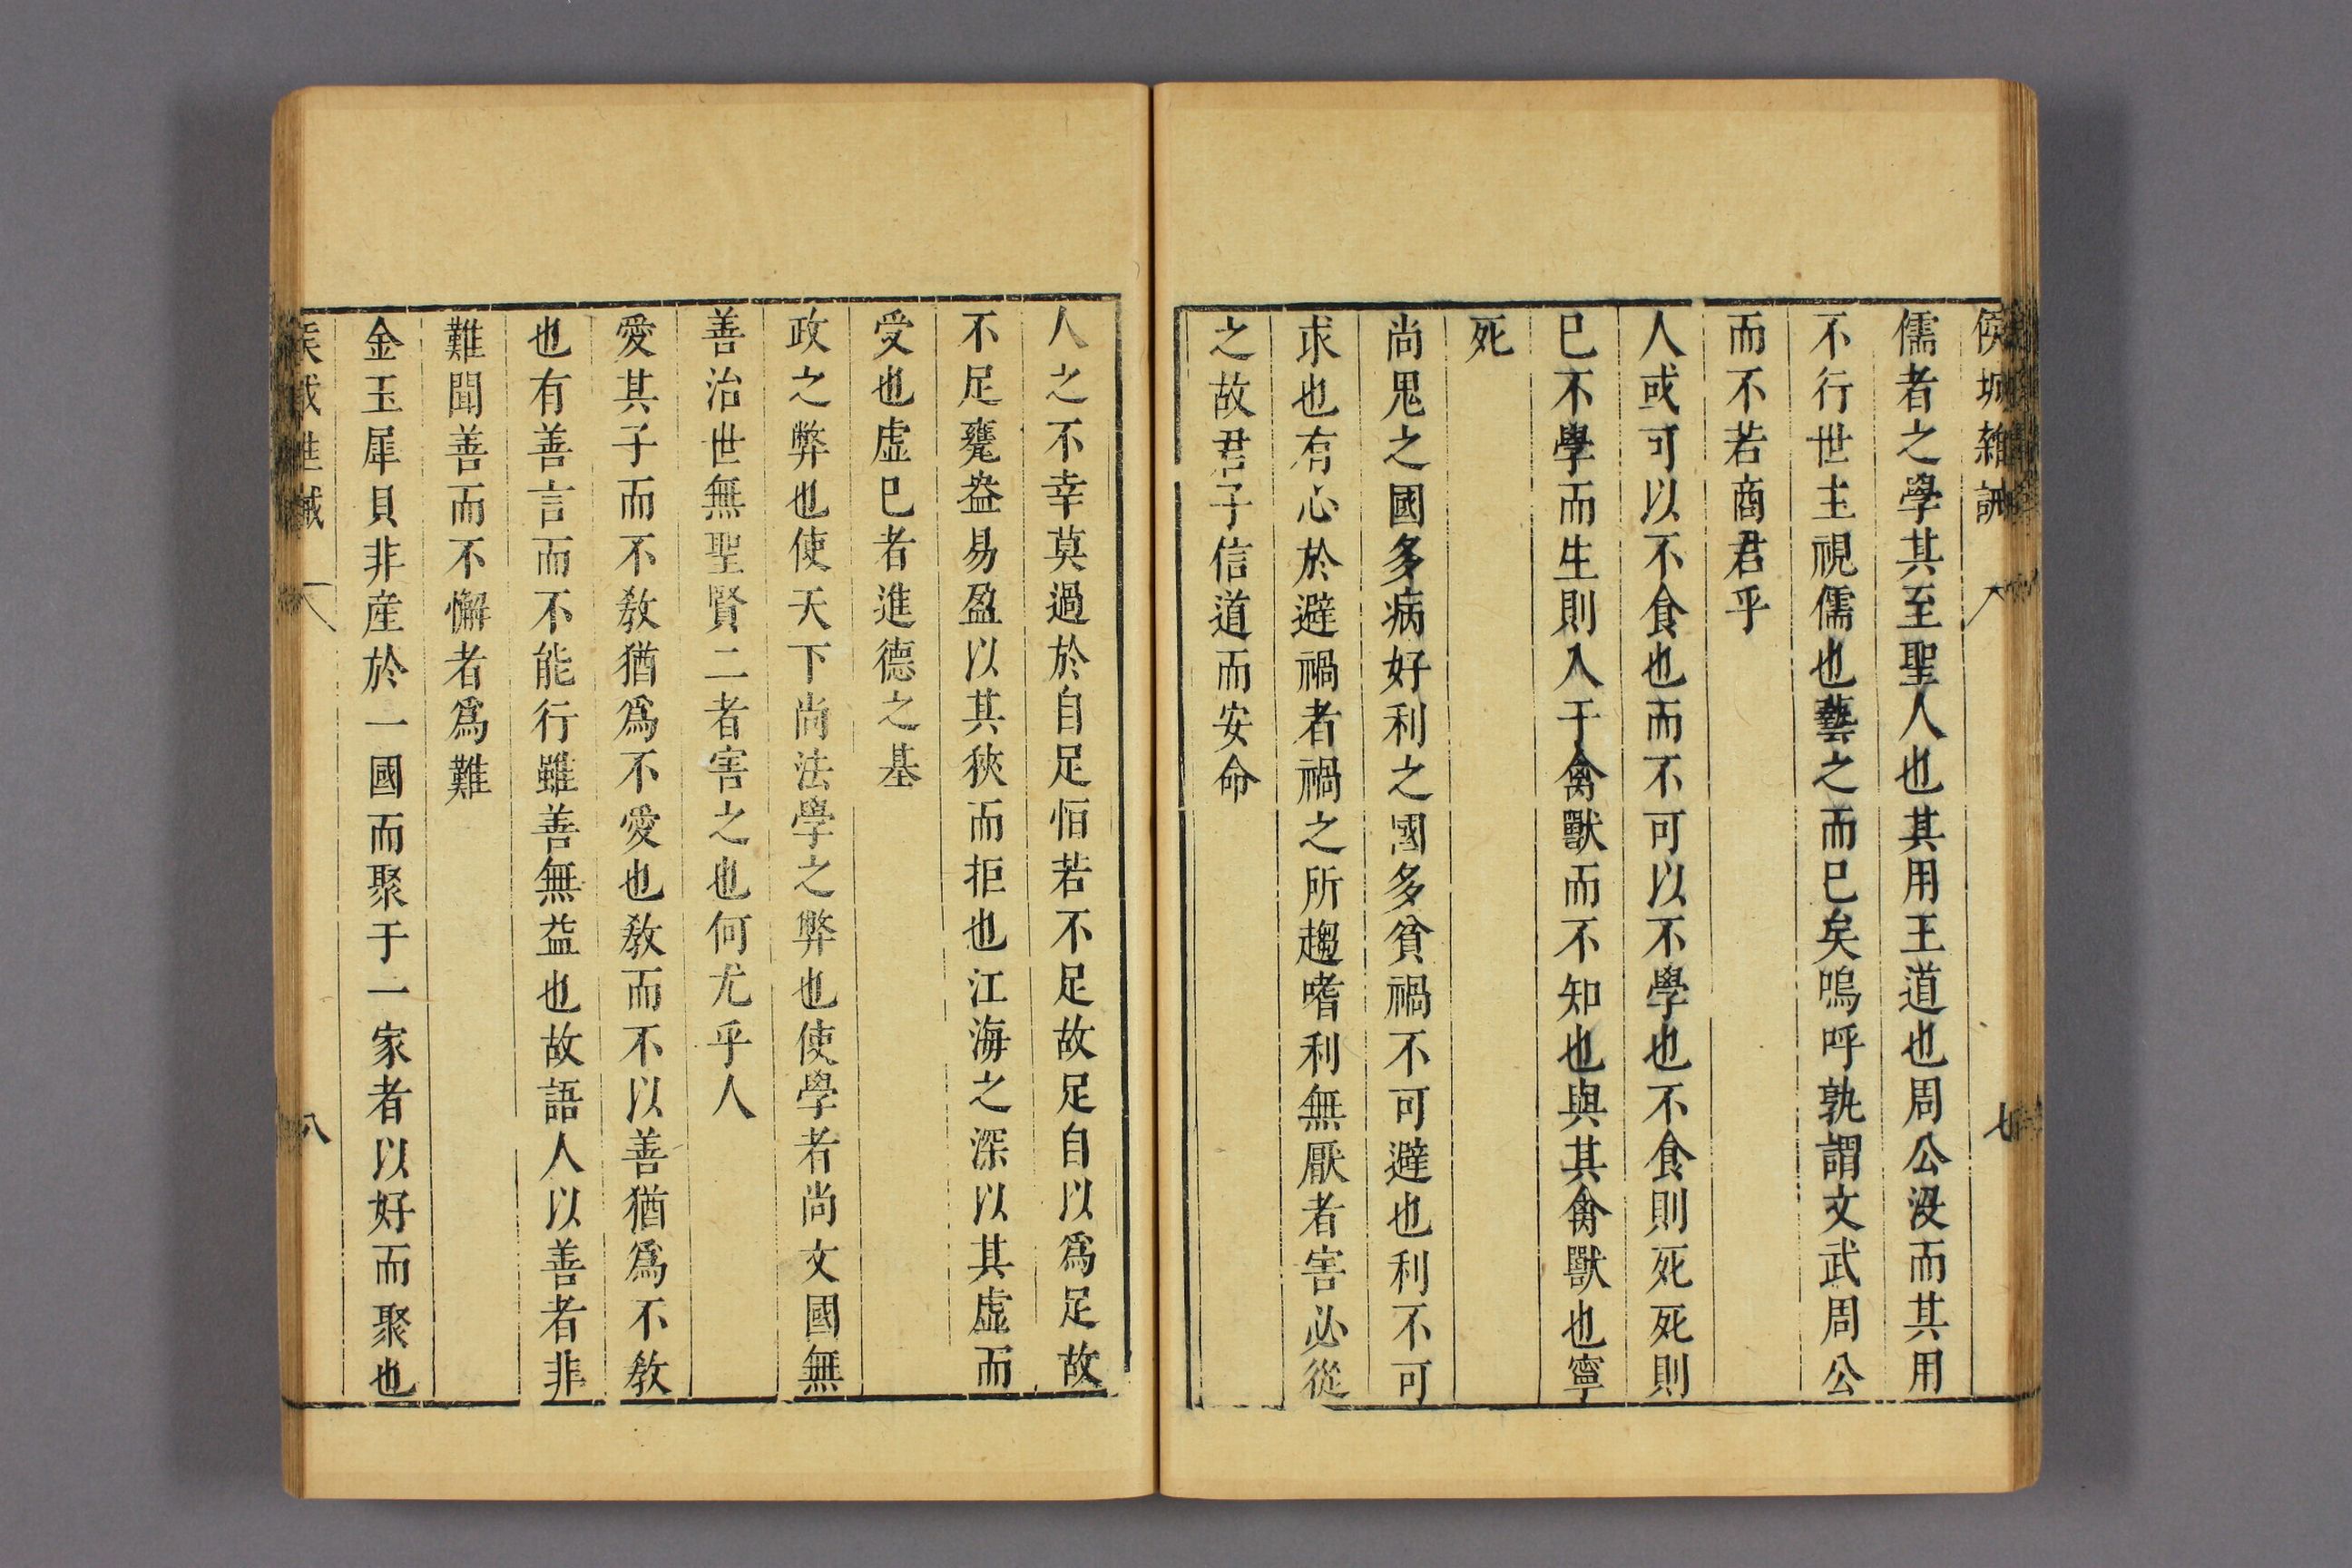 侯城雜誡
七
儒者之學其至聖人也其用王道也周公没而其用
不行世主視儒也藝之而巳矣嗚呼孰謂文武周公
而不若商君乎
人或可以不食也而不可以不學也不食則死死則
巳不學而生則入于禽獸而不知也與其禽獸也寧
死
尚鬼之國多病好利之國多貧禍不可避也利不可
求也有心於避禍者禍之所趨嗜利無厭者害必從
之故君子信道而安命
人之不幸莫過於自足恒若不足故足自以爲足故
不足甕盎易盈以其狹而拒也江海之深以其虛而
受也虛巳者進德之基
政之弊也使天下尚法學之弊也使學者尚文國無
善治世無聖賢二者害之也何尤乎人
愛其子而不敎猶爲不愛也敎而不以善猶爲不敎
也有善言而不能行雖善無益也故語人以善者非
難聞善而不懈者爲難
金玉犀貝非産於一國而聚于一家者以好而聚也
八